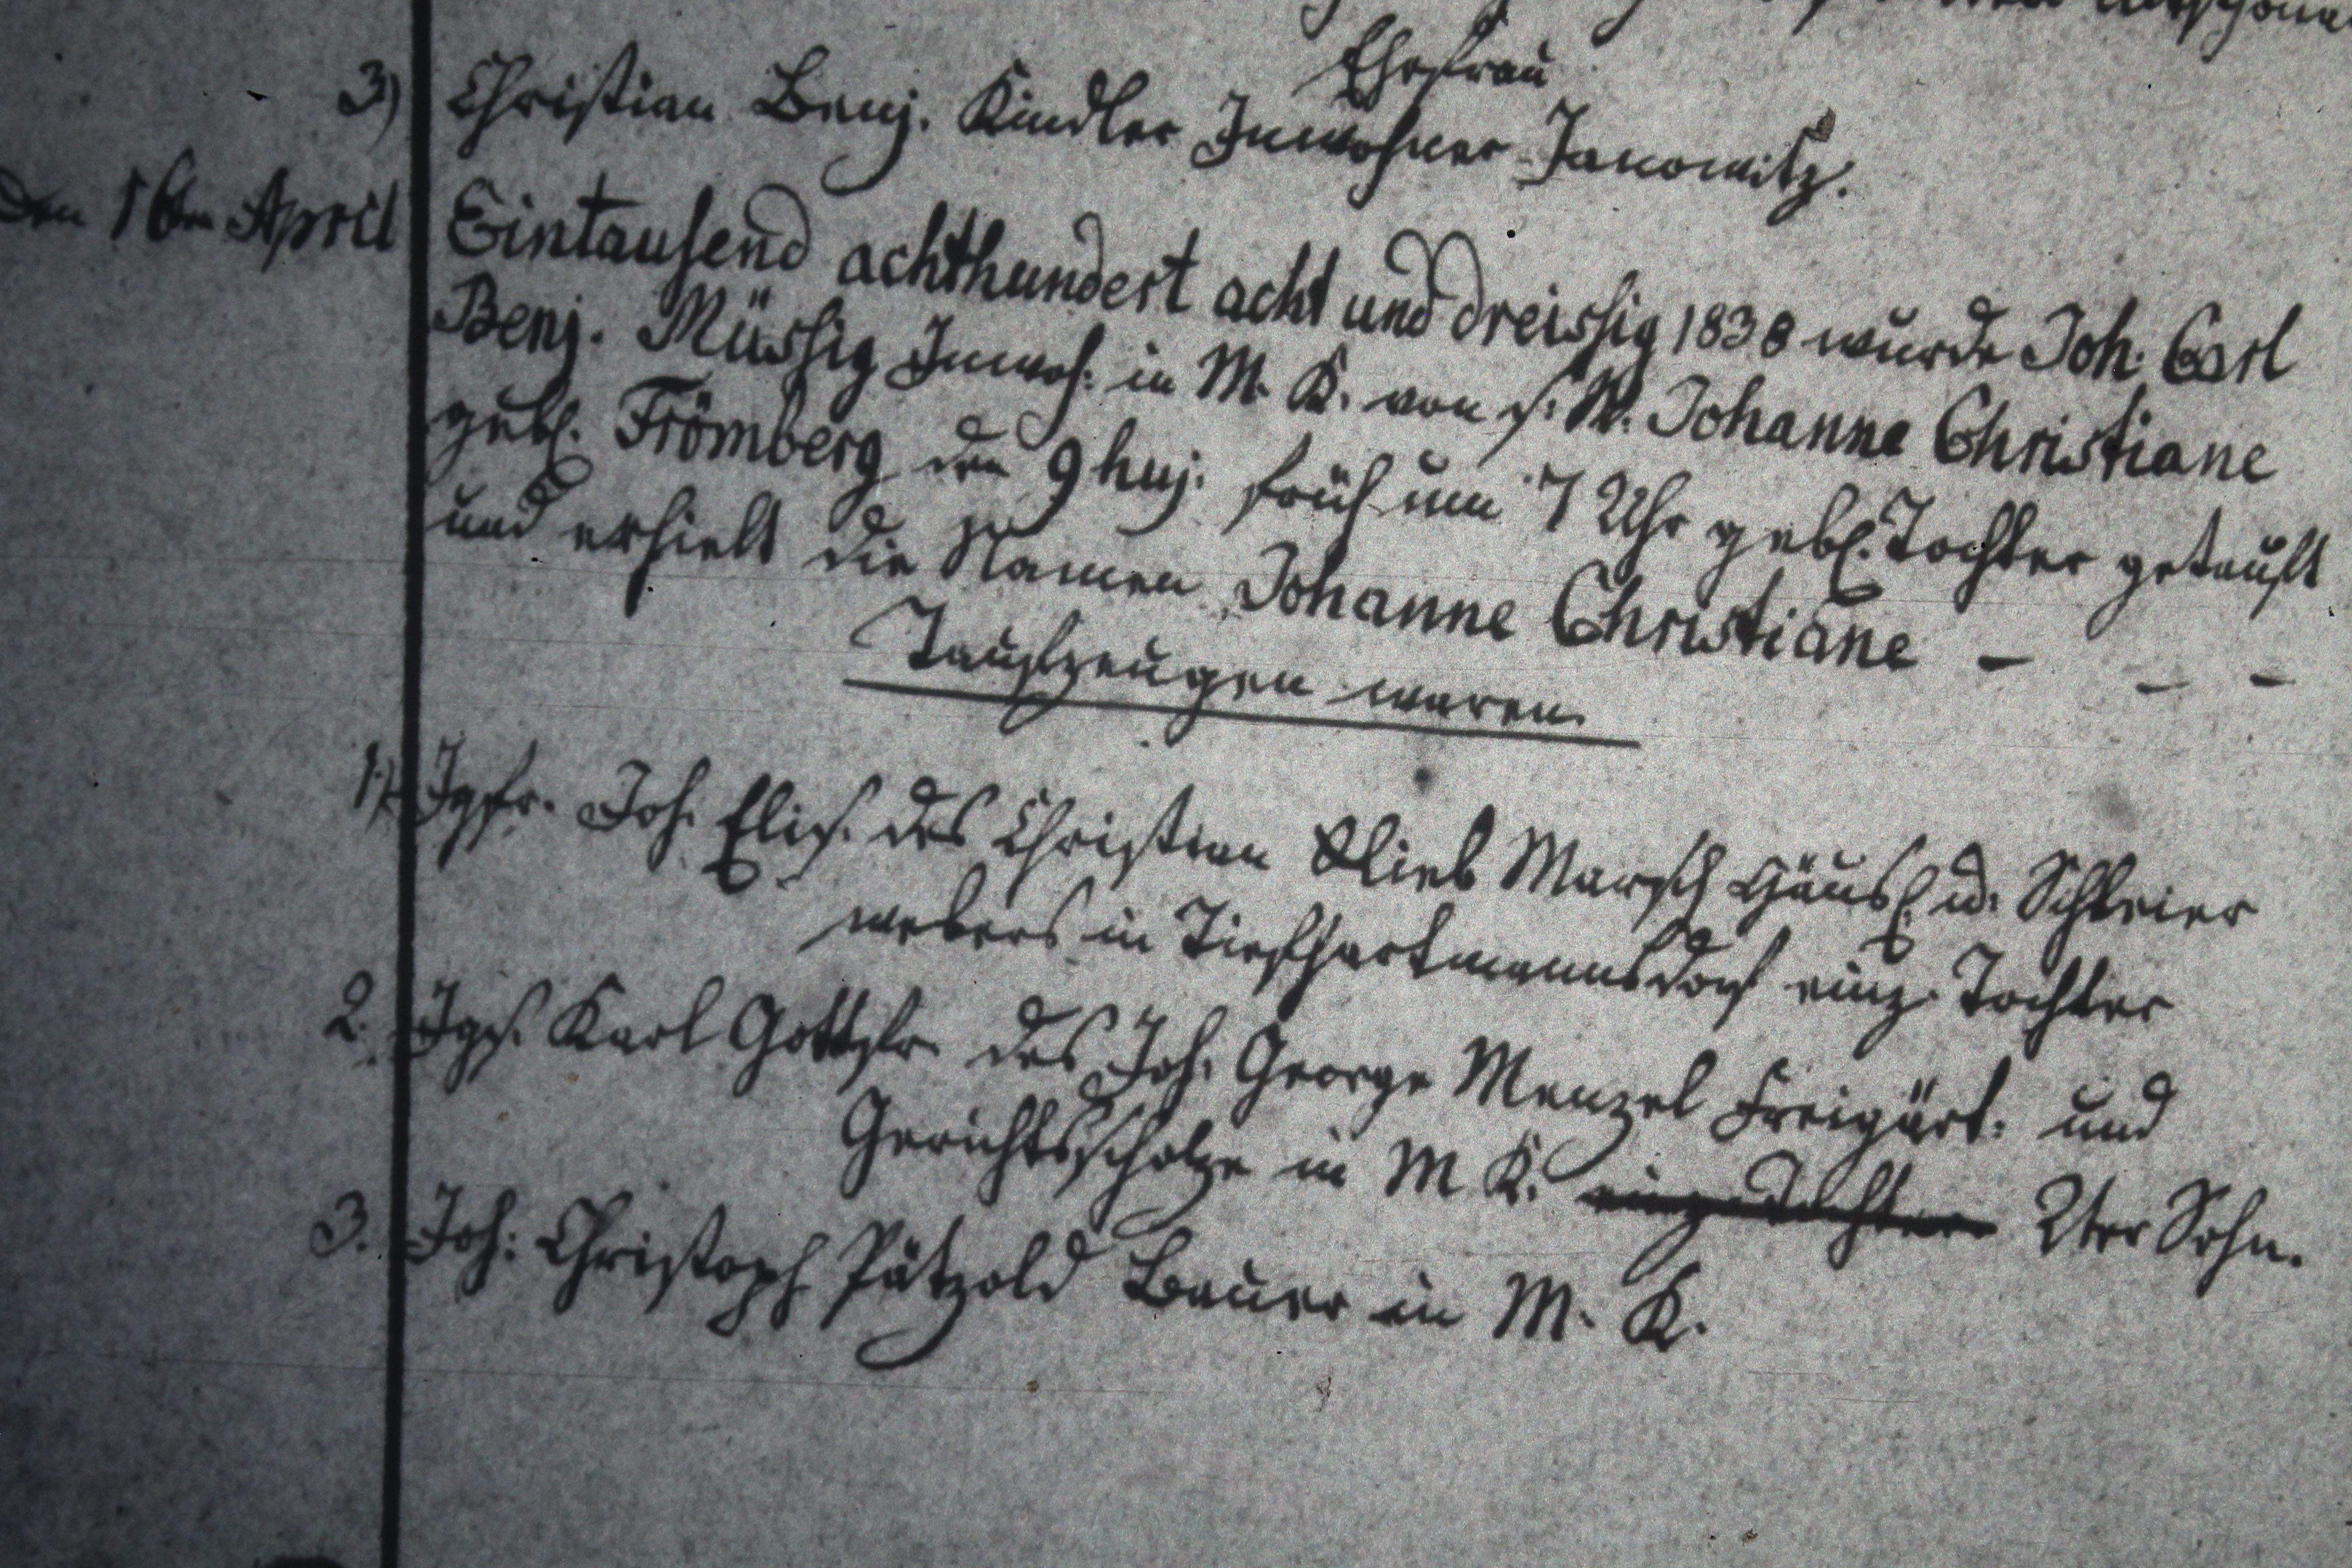 Ehefrau
3) Christian Benj. Kindler Inwohner Janowitz.
den 16ten April Eintausend achthundert acht und dreissig 1838 wurde Joh. Carl
Benj. Müssig Inwoh: in M. K. von s: W. Johanne Christiane
gebl. Frömberg den 9 huj. früh um 7 Uhr gebl. Tochter getauft
und erhielt die Namen Johanne Christiane - - -
Taufzeugen waren.
1.) Igfr. Joh. Elis. des Christian Glieb Marsch Häusl. u. Schleier
webers in Tiefhartmannsdorf einz. Tochter
2. Igs. Karl Gottfr. des Joh. George Menzel Freigärt: und
Gerichtsscholze in M K. einz. Tochter 2ter Sohn.
3. Joh: Christoph Pätzold Bauer in M. K.